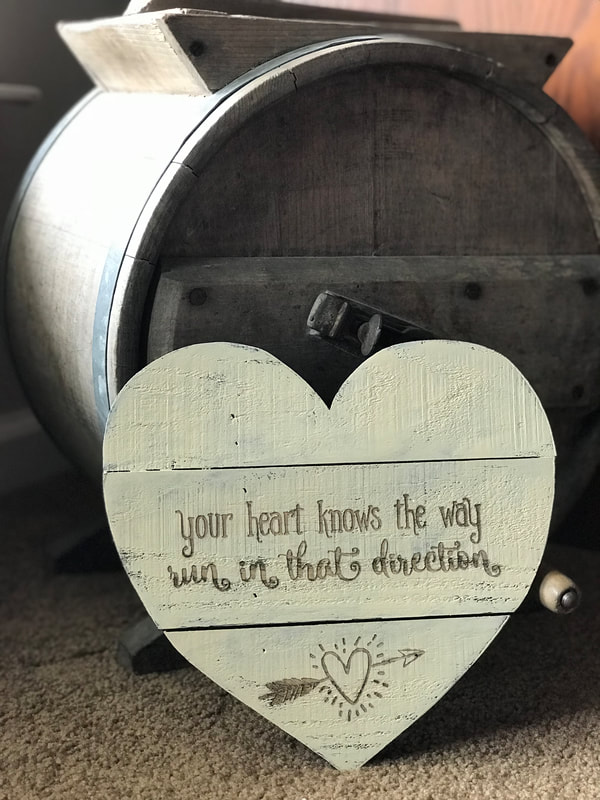 your heart knows the way
run in that direction